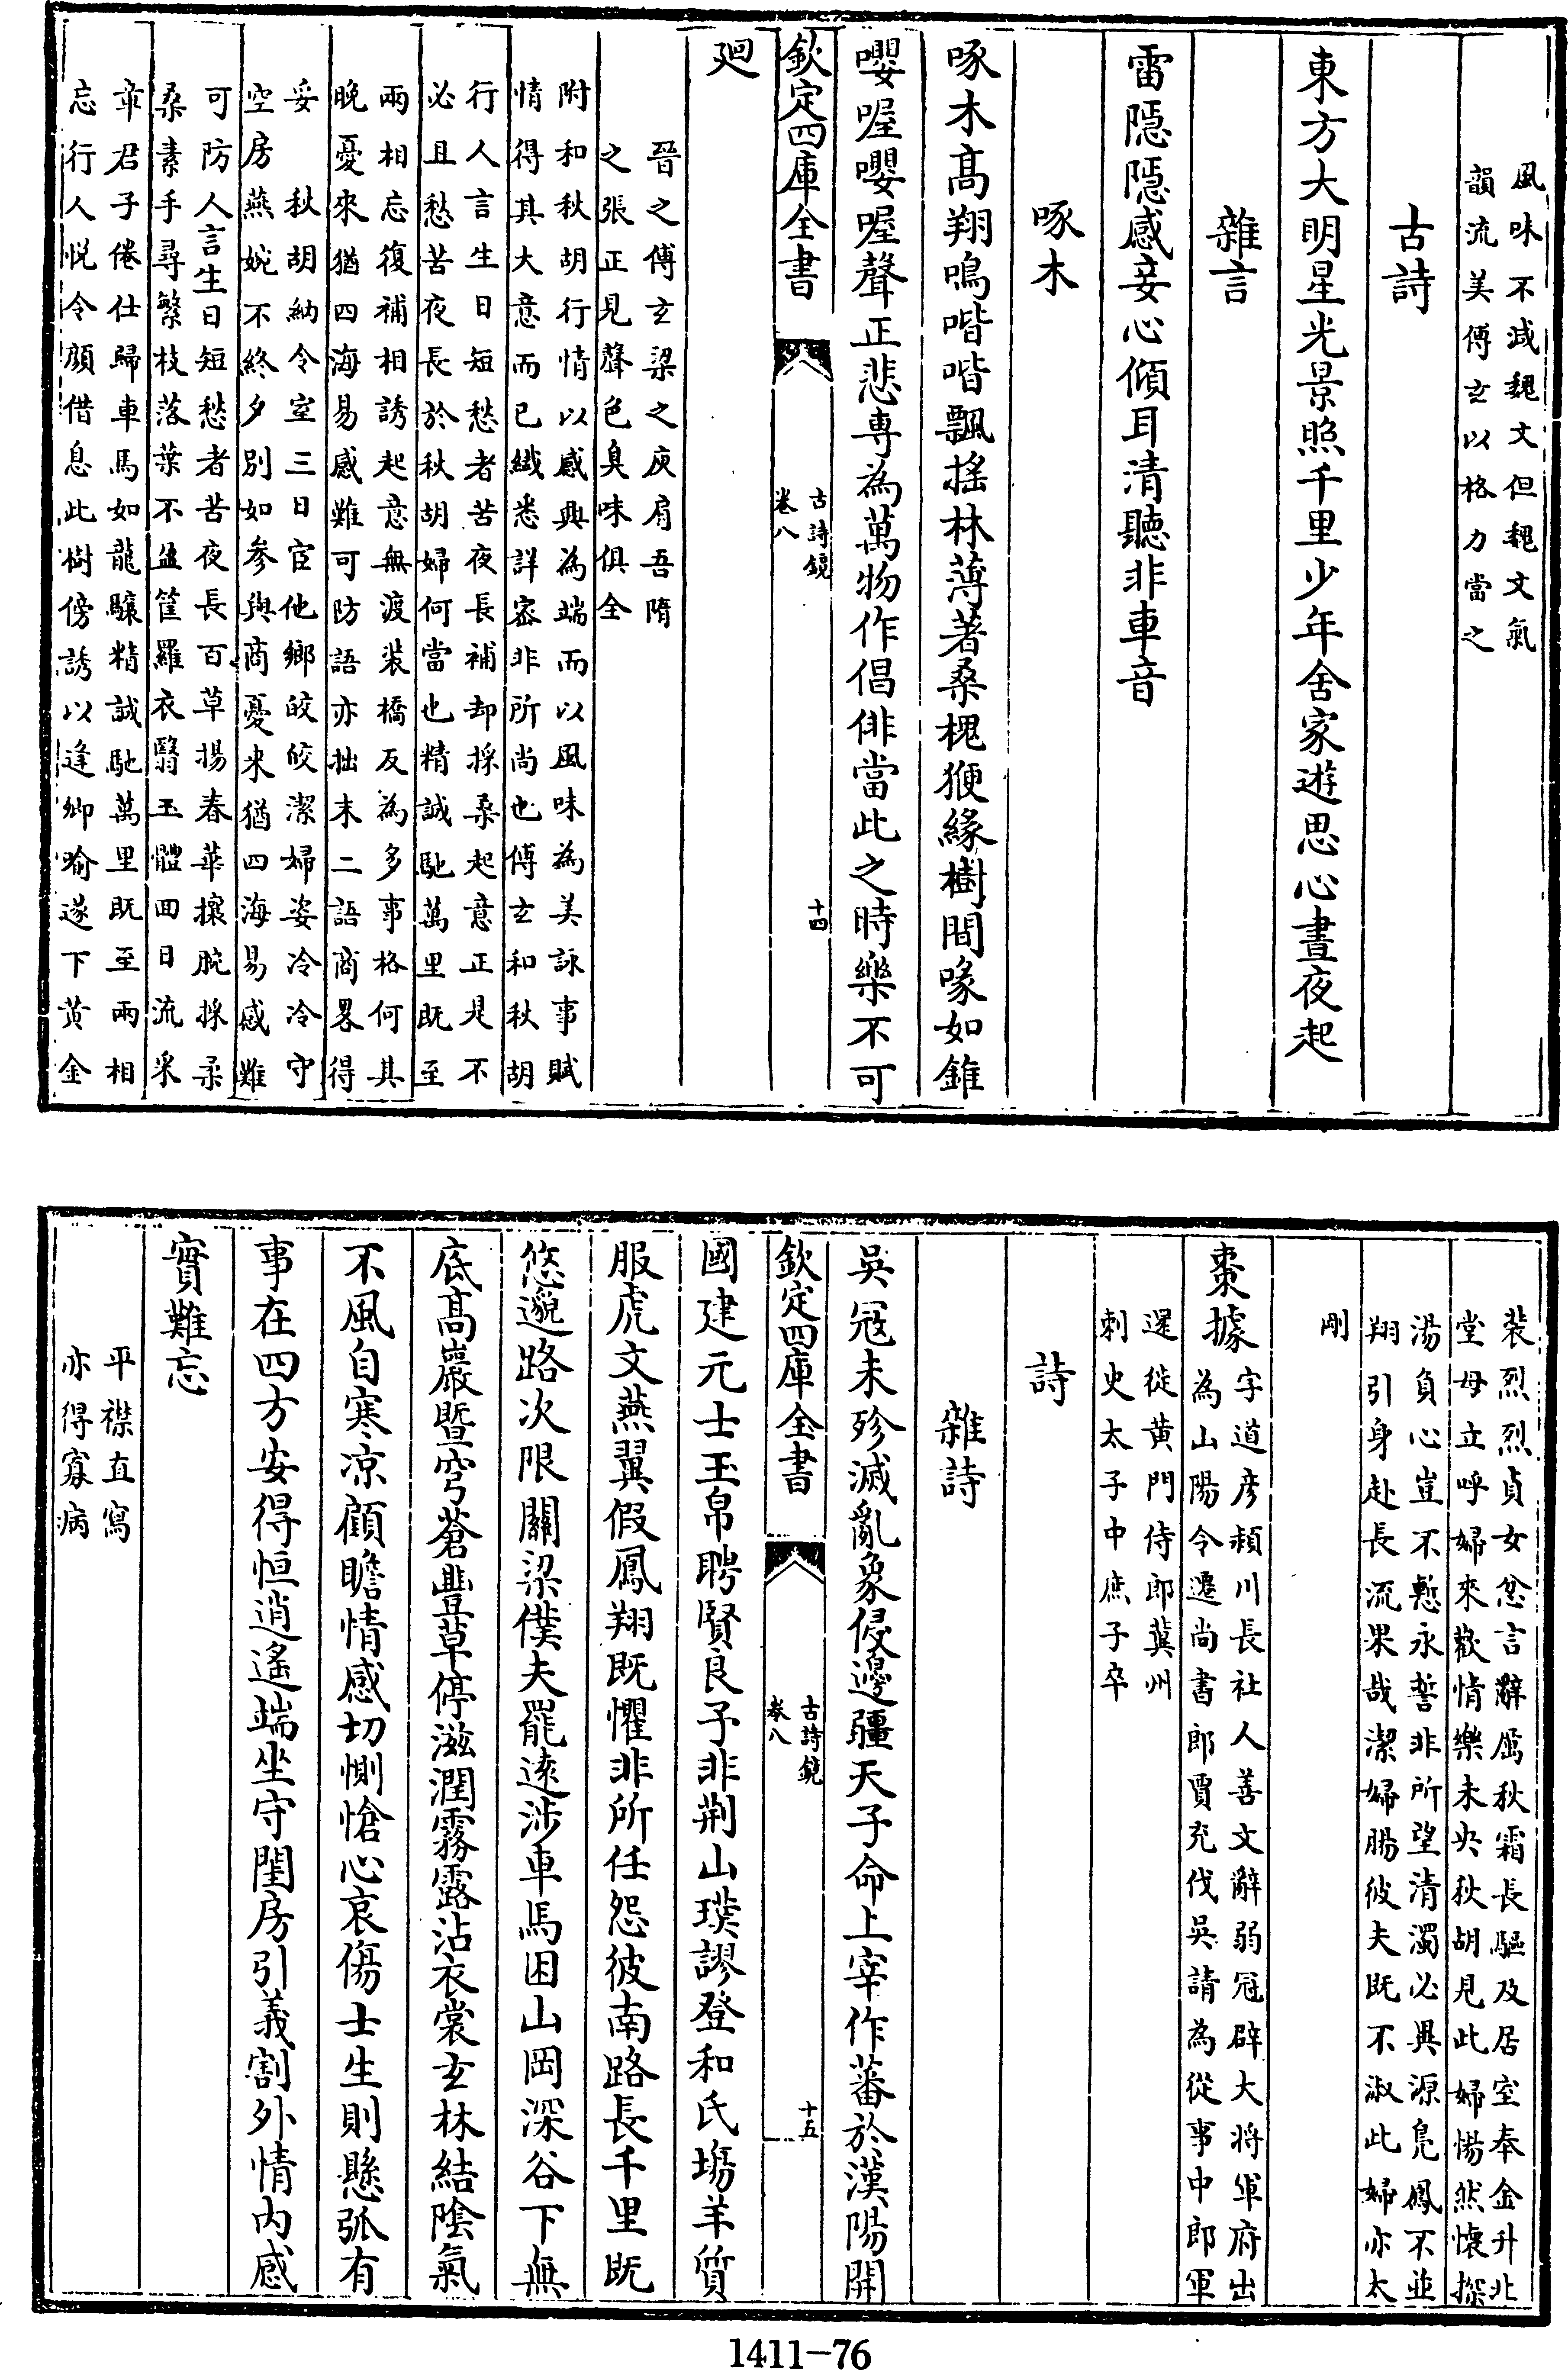 風味不減魏文但魏文氣
韻流美傅玄以格力當之
古詩
東方大明星光景照千里少年舍家遊思心晝夜起
雜言
雷隱隱感妾心傾耳清聽非車音
啄木
啄木高翔鳴喈喈飄搖林薄著桑槐㹴緣樹間喙如錐
嚶喔嚶喔聲正悲專為萬物作倡俳當此之時樂不可
欽定四庫全書
古詩鏡
卷八
十四
廻
晉之傅玄梁之庾肩吾隋
之張正見聲色臭味俱全
附和秋胡行情以感興為端而以風味為美詠事賦
情得其大意而已纎悉詳密非所尚也傅玄和秋胡
行人言生日短愁者苦夜長補却採桑起意正是不
必且愁苦夜長於秋胡婦何當也精誠馳萬里既至
兩相忘復補相相誘起意無渡裝橋反為多事格何其
晚憂來猶四海易感難可防語亦拙末二語商畧得
妥　秋胡納令室三日宦他鄉皎皎潔婦姿冷冷守
空房燕婉不終夕别如參與商憂來猶四海易感難
可防人言生日短愁者苦夜長百草揚春華攘腕採柔
桑素手尋繁枝落葉不盈筐羅衣翳玉體回日流采
章君子倦仕歸車馬如龍驤精誠馳萬里既至兩相
忘行人悦令顔借息此樹傍誘以逢卿喻遂下黄金
裝烈烈貞女忿言辭厲秋霜長驅及居室奉金升北
堂母立呼婦來歡情樂未央秋胡見此婦惕然懐探
湯負心豈不慙永誓非所望清濁必異源鳬鳳不並
翔引身赴長流果哉潔婦腸彼夫既不淑此婦亦太
剛
棗據
字道彦頴川長社人善文辭弱冠辟大將軍府出
為山陽令遷尚書郎賈充伐吳請為從事中郎軍
還徙黄門侍郎冀州
刺史太子中庶子卒
詩
雜詩
吳冦未殄滅亂象侵邊疆天子命上宰作蕃於漢陽開
欽定四庫全書
古詩鏡
卷八
十五
國建元士玉帛聘賢良予非荆山璞謬登和氏場羊質
服虎文燕翼假鳳翔既懼非所任怨彼南路長千里既
悠邈路次限關梁僕夫罷逺涉車馬困山岡深谷下無
底高巖暨穹蒼豐草停滋潤霧露沾衣裳玄林結陰氣
不風自寒凉顧瞻情感切惻愴心哀傷士生則懸弧有
事在四方安得恒逍遙端坐守閨房引義割外情内感
實難忘
平襟直寫
亦得寡病
1411-76